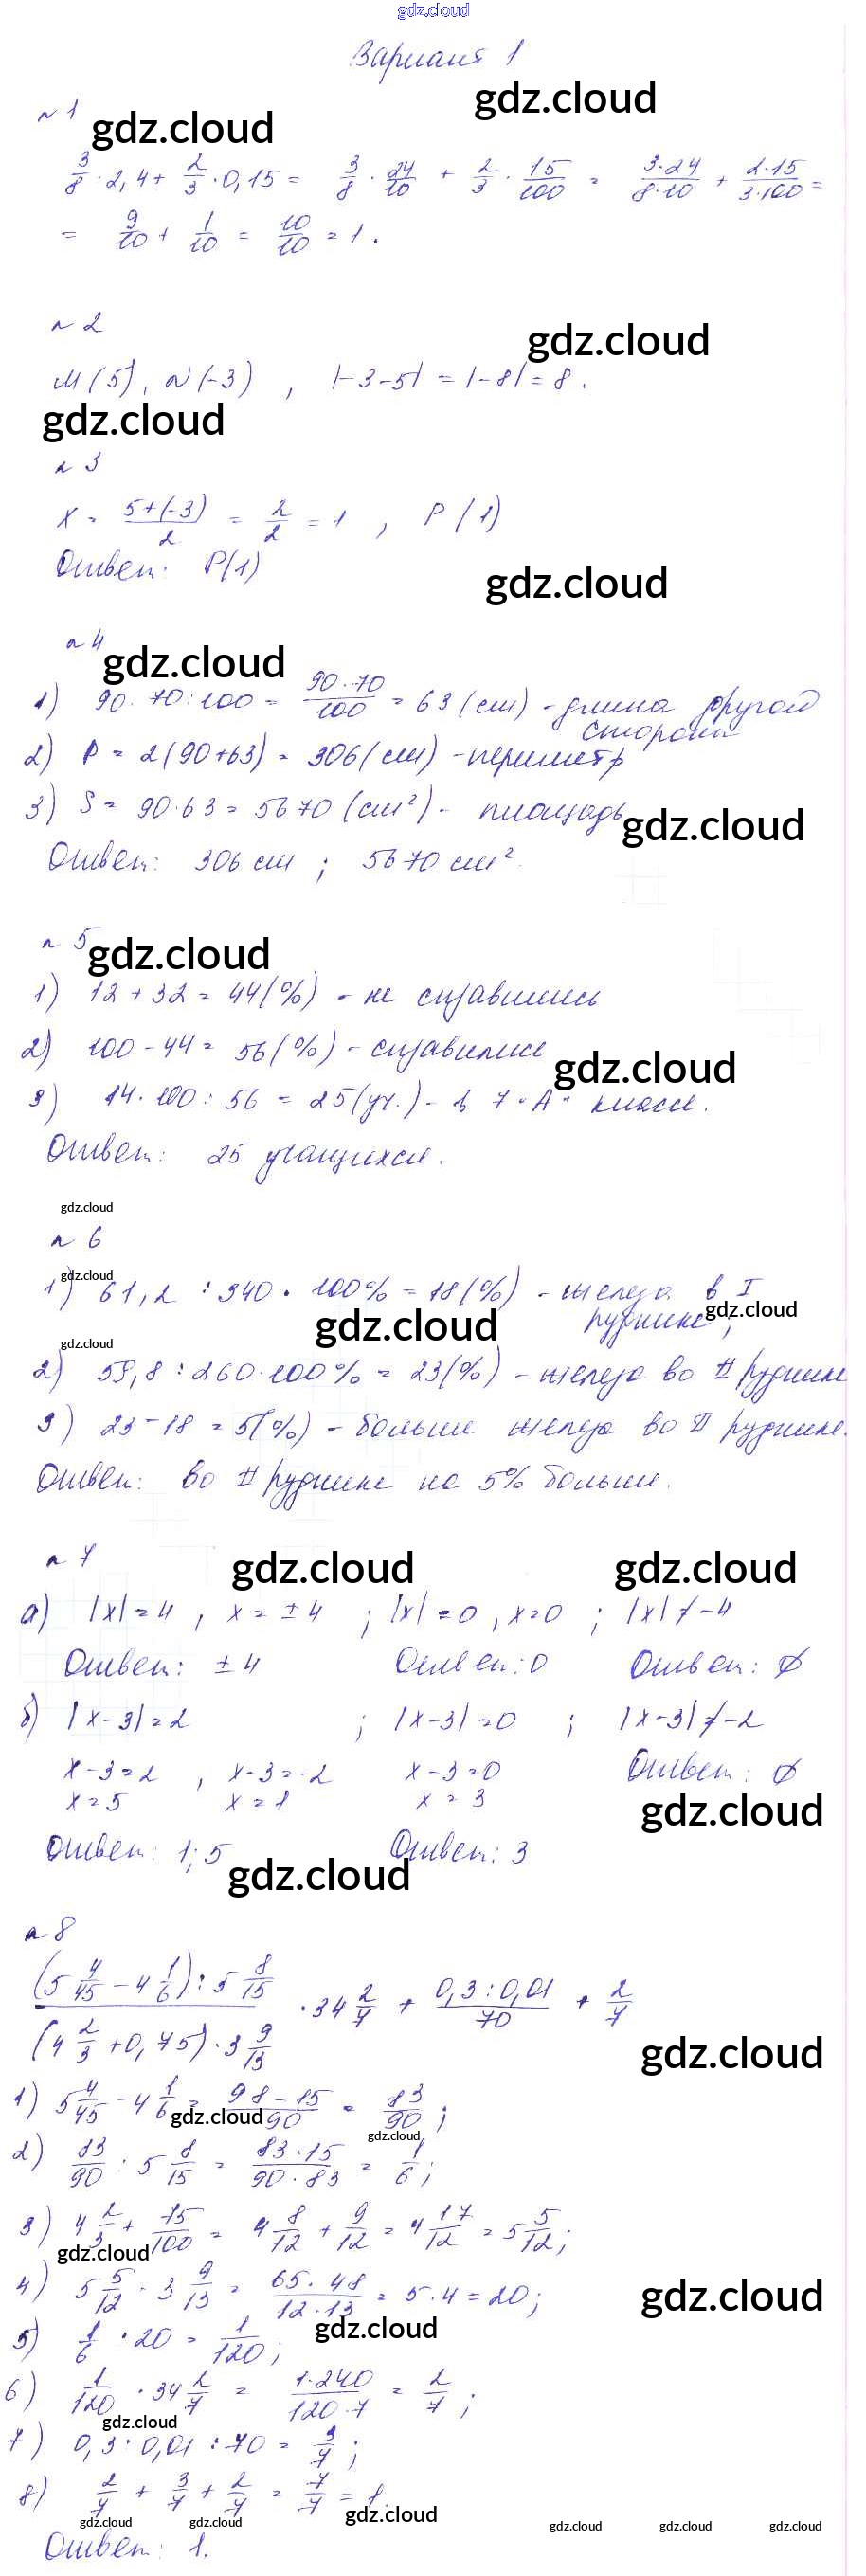 gdz.cloud
Вариант 1
gdz.cloud
№ 1
gdz.cloud
3/8 · 2,4 + 2/3 · 0,15 = 3/8 · 24/10 + 2/3 · 15/100 = 3·24/8·10 + 2·15/3·100 =
= 9/10 + 1/10 = 10/10 = 1.
№ 2
gdz.cloud
M(5), N(-3), |-3-5| = |-8| = 8.
gdz.cloud
№ 3
x = 5+(-3)/2 = 2/2 = 1, P(1)
Ответ: P(1)
gdz.cloud
№ 4
gdz.cloud
1) 90·70:100 = 90·70/100 = 63 (см) - длина другой
стороны
2) P = 2(90+63) = 306 (см) - периметр
3) S = 90·63 = 5670 (см²) - площадь
gdz.cloud
Ответ: 306 см; 5670 см².
№ 5
gdz.cloud
1) 12 + 32 = 44(%) - не справились
2) 100 - 44 = 56(%) - справились
gdz.cloud
3) 14·100:56 = 25(уч.) - в 7 "А" классе.
Ответ: 25 учащихся.
gdz.cloud
№ 6
gdz.cloud
1) 61,2 : 340 · 100% = 18(%) - железа в I
руднике;
gdz.cloud
gdz.cloud
gdz.cloud
2) 59,8 : 260·100% = 23(%) - железа во II руднике
3) 23 - 18 = 5(%) - больше железа во II руднике.
Ответ: во II руднике на 5% больше.
№ 7
gdz.cloud gdz.cloud
а) |x| = 4, x = ±4; |x| = 0, x = 0; |x| ≠ -4
Ответ: ±4 Ответ: 0 Ответ: ∅
б) |x-3| = 2; |x-3| = 0; |x-3| ≠ -2
x-3=2, x-3=-2 x-3=0 Ответ: ∅
x=5 x=1 x=3
gdz.cloud
Ответ: 1; 5 Ответ: 3
gdz.cloud
№ 8
(5 4/45 - 4 1/6) : 5 8/15 / (4 2/3 + 0,75) · 3 9/13 · 34 2/7 + 0,3:0,01/70 + 2/7
gdz.cloud
1) 5 4/45 - 4 1/6 = 98-15/90 = 83/90;
gdz.cloud
gdz.cloud
2) 83/90 : 5 8/15 = 83·15/90·83 = 1/6;
3) 4 2/3 + 75/100 = 4 8/12 + 9/12 = 4 17/12 = 5 5/12;
gdz.cloud
4) 5 5/12 · 3 9/13 = 65·48/12·13 = 5·4 = 20;
gdz.cloud
gdz.cloud
5) 1/6 : 20 = 1/120;
6) 1/120 · 34 2/7 = 1·240/120·7 = 2/7;
gdz.cloud
7) 0,3 : 0,01 : 70 = 3/7;
8) 2/7 + 3/7 + 2/7 = 7/7 = 1.
gdz.cloud gdz.cloud gdz.cloud gdz.cloud gdz.cloud gdz.cloud
Ответ: 1.